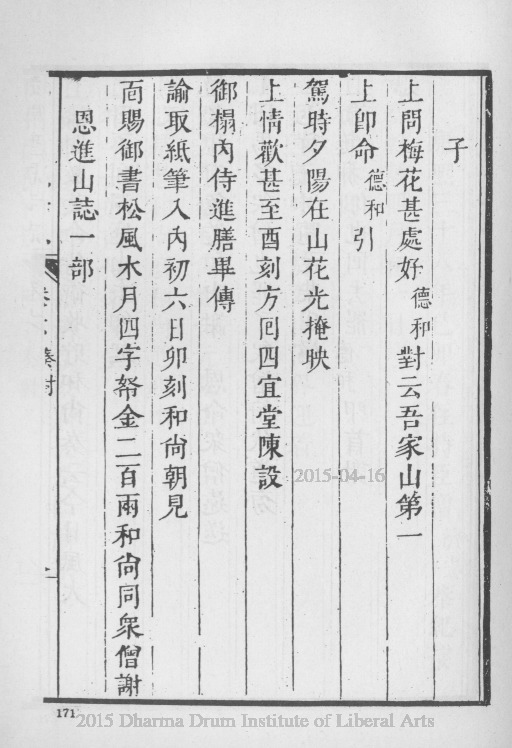 子
上問梅花甚處好德和對云吾家山第一
上卽命德和引
駕時夕陽在山花光掩映
上情歡甚至酉刻方囘四宜堂陳設
御榻內侍進膳畢傳
諭取紙筆入內初六日卯刻和尙朝見
靣賜御書松風水月四字帑金二百兩和尙同衆僧謝
恩進山誌一部
奏對
171
2015-04-16
2015 Dharma Drum Institute of Liberal Arts